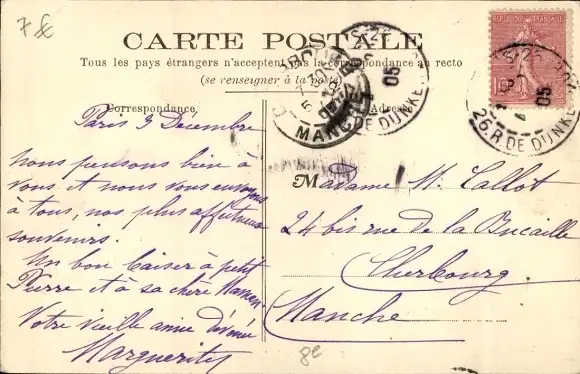 7 fc
CARTE POSTALE
Tous les pays étrangers n'acceptent pas la correspondance au recto
(se renseigner à la poste)
REPUBLIQUE FRANÇAISE
10
05
26. R. DE DUNKE
MANCHE
05
DE DUNKE
Correspondance
Adresse
Paris 3 Décembre
Nous pensons bien à
vous, et nous vous envoyons
à tous, nos plus affectueux
souvenirs.
Un bon baiser à petit
Pierre et à sa chère Maman.
Votre vieille amie dévouée
Marguerite
Madame H. Callot
24 bis rue de la Bucaille
Cherbourg
Manche
8e